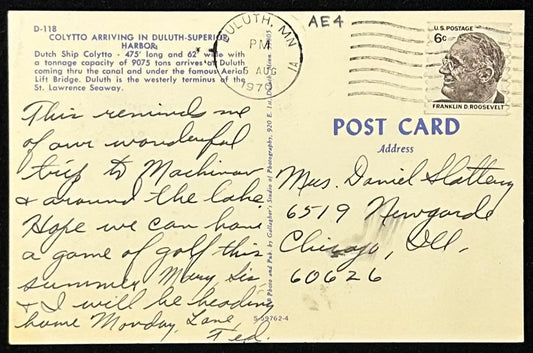 D-118
COLYTTO ARRIVING IN DULUTH-SUPERIOR
HARBOR
Dutch Ship Colytto - 475' long and 62' wide with
a tonnage capacity of 9075 tons arrives at Duluth
coming thru the canal and under the famous Aerial
Lift Bridge. Duluth is the westerly terminus of the
St. Lawrence Seaway.
DULUTH, MN
PM
5 AUG
1970
AE4
U.S. POSTAGE
6c
FRANKLIN D. ROOSEVELT
POST CARD
Address
This reminds me
of our wonderful
trip to Machinaw
& around the lake.
Hope we can have
a game of golf this
summer. Mary, Sis
& I will be heading
home Monday. Love
Ted.
Photo and Pub. by Gallagher's Studio of Photography, 920 E. 1st
Mrs. Daniel Slattery
6519 Newgard
Chicago, Ill.
60626
S-59762-4